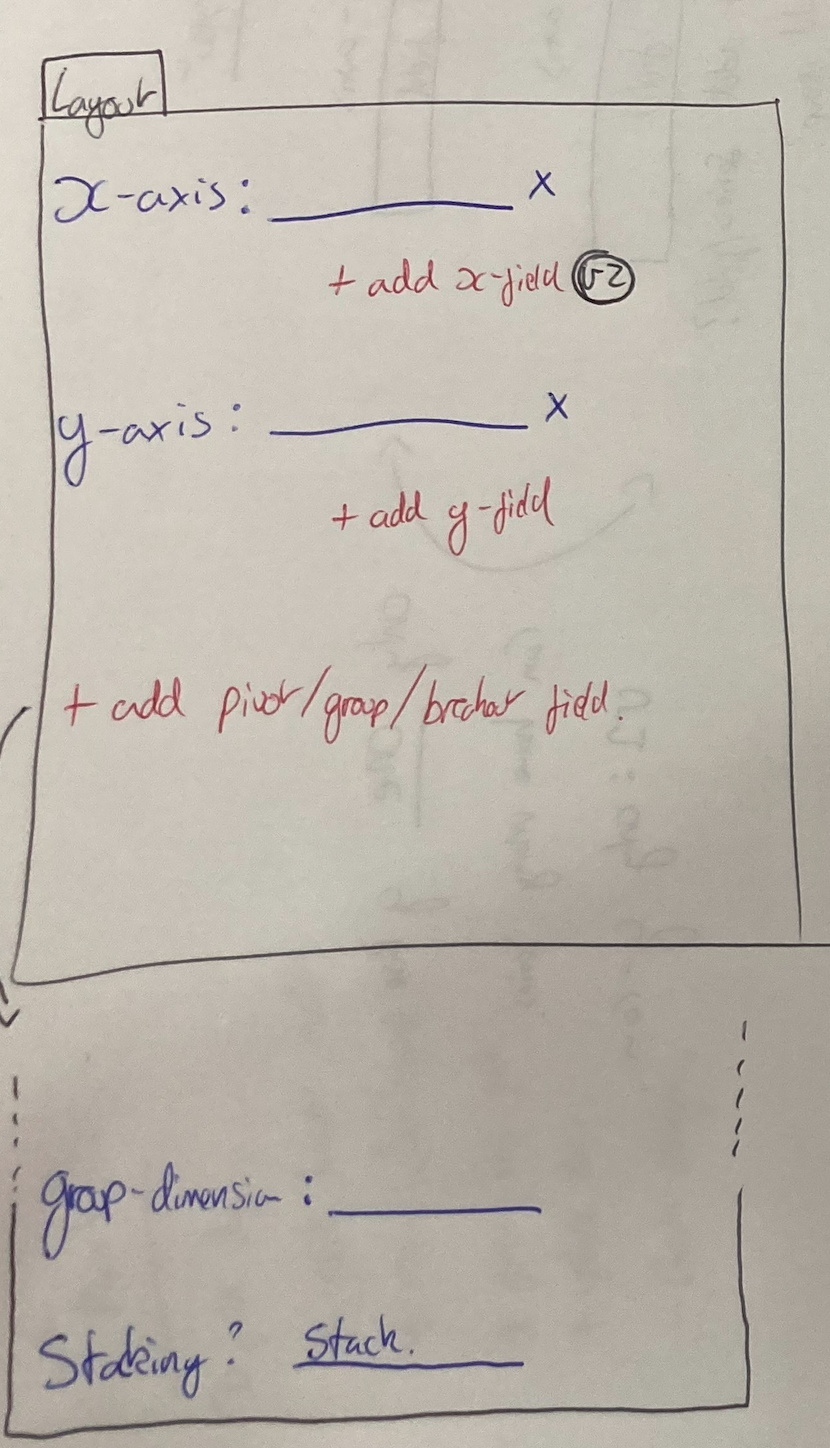 Layout
x-axis: x
+ add x-field v2
y-axis: x
+ add y-field
+ add pivot/group/ field.
group-dimension:
Stacking? Stack.